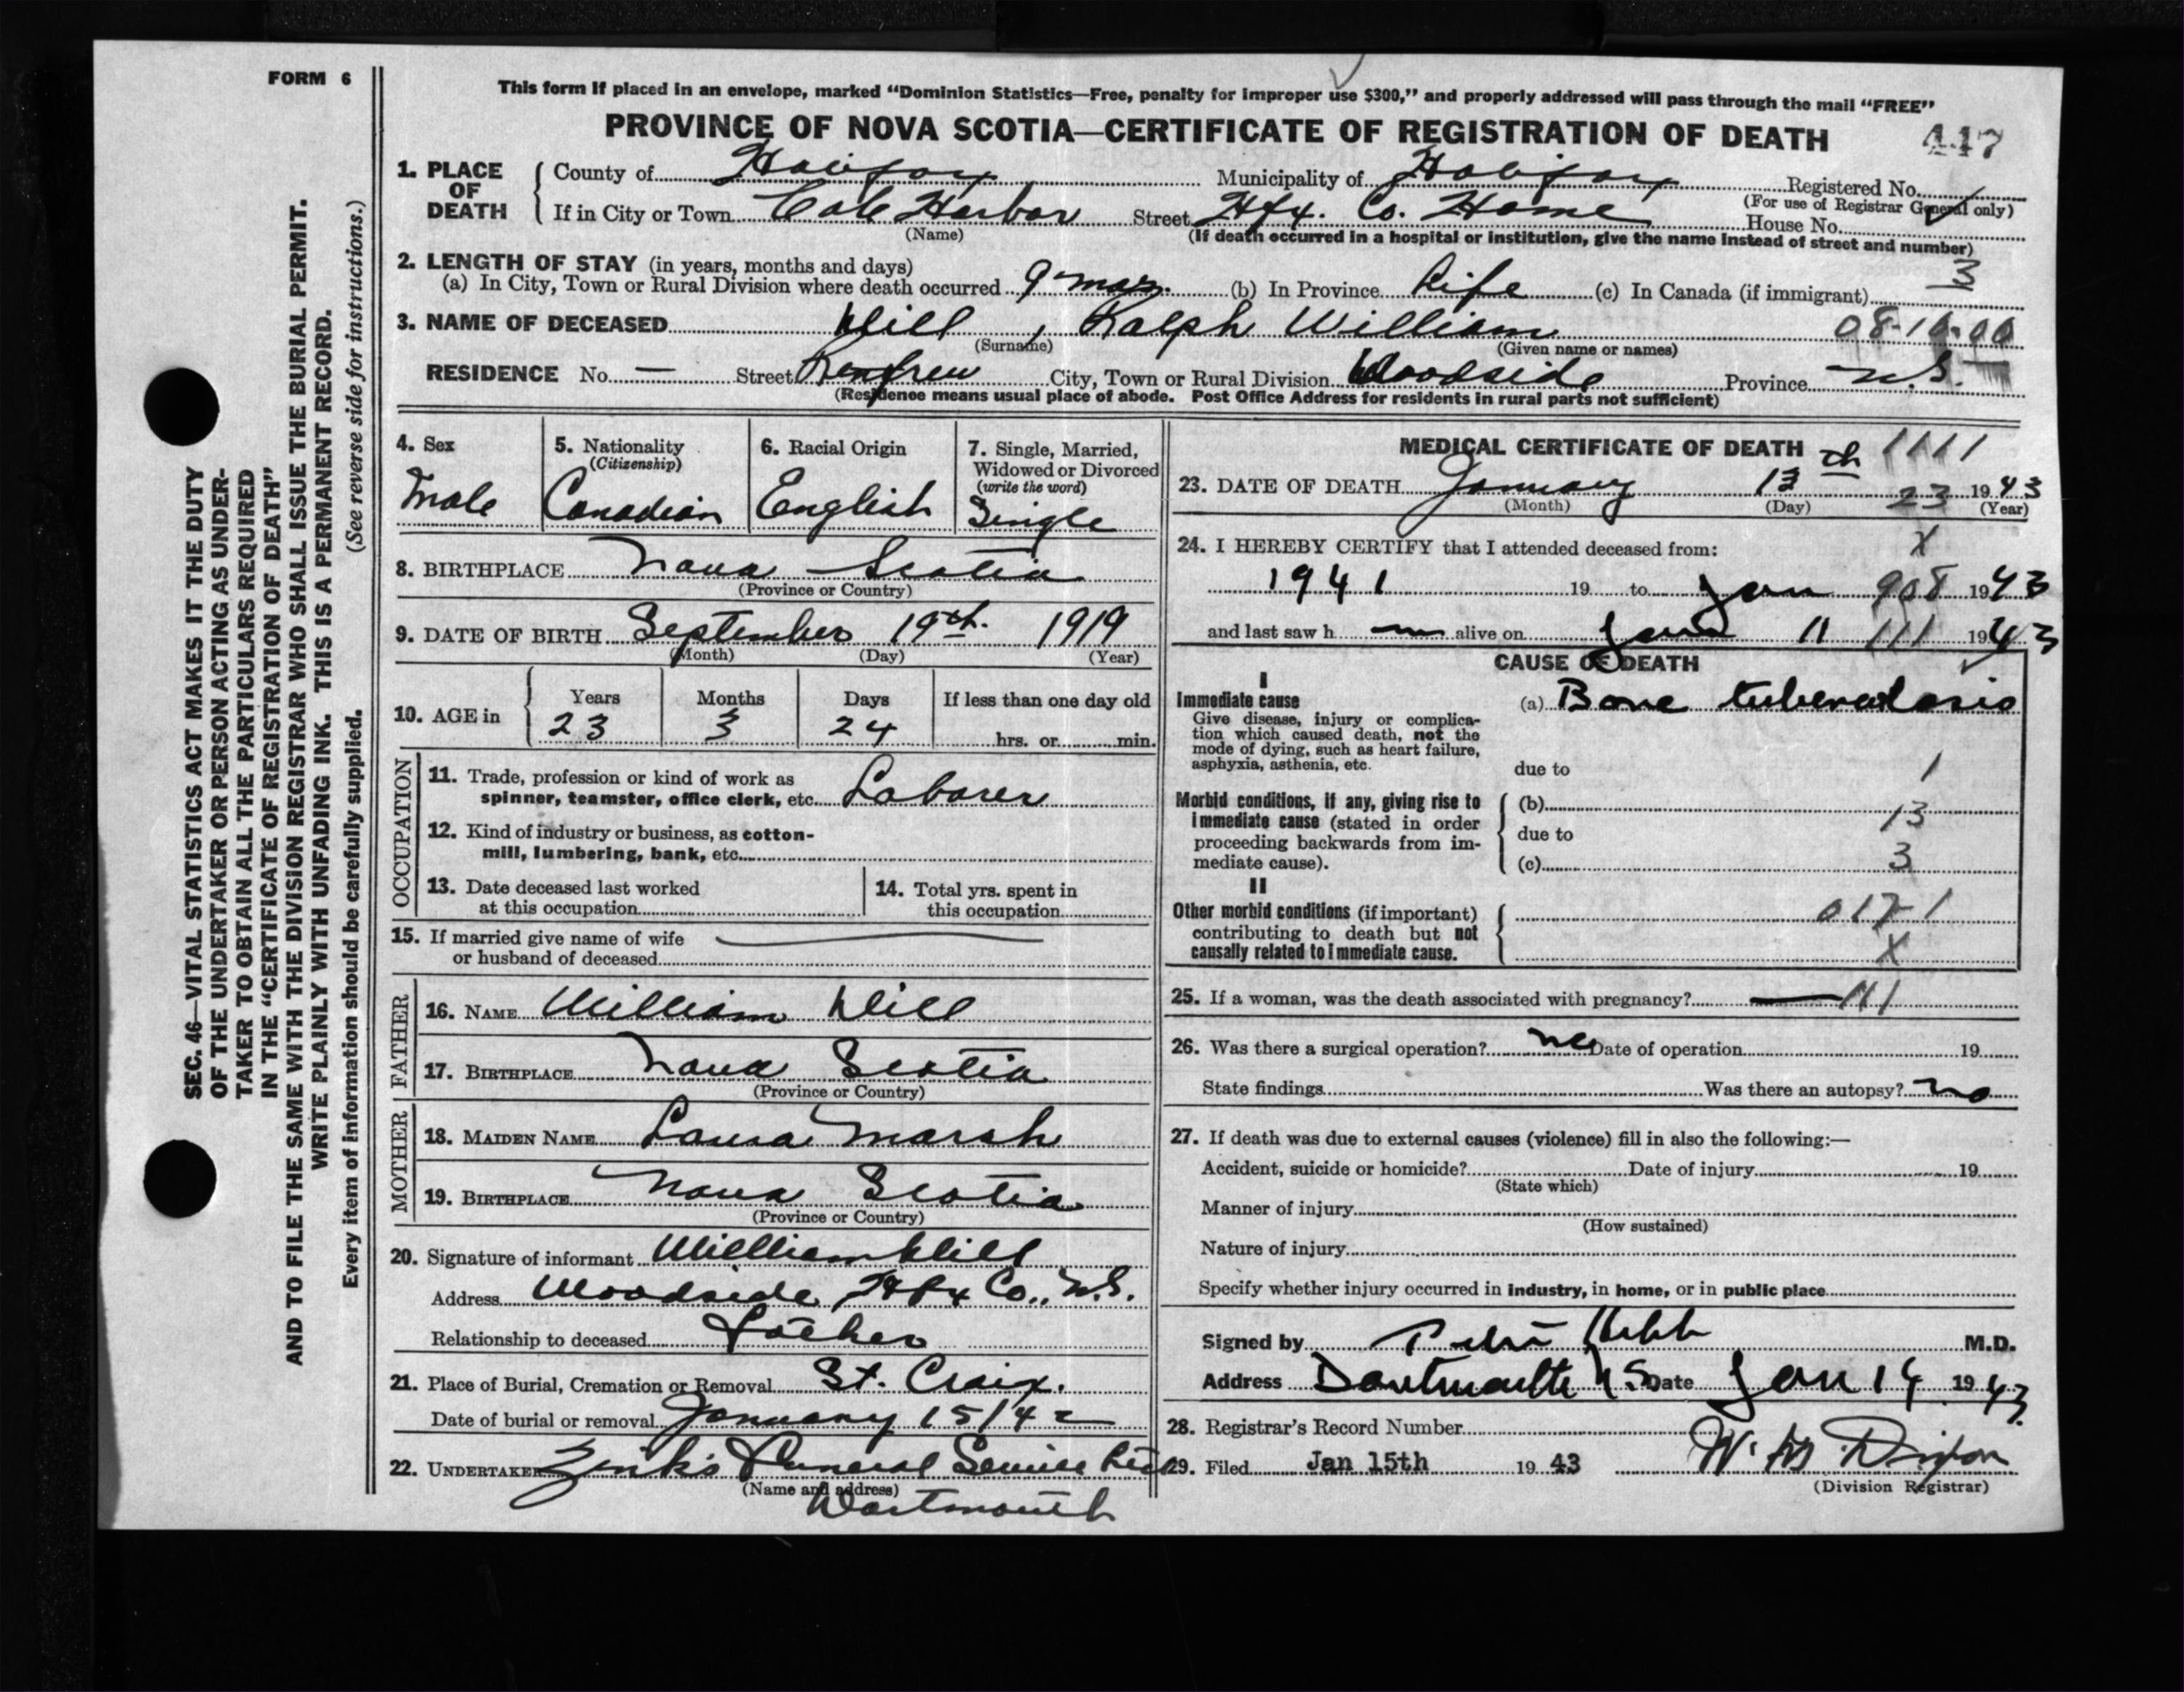 FORM 6
SEC. 46—VITAL STATISTICS ACT MAKES IT THE DUTY
OF THE UNDERTAKER OR PERSON ACTING AS UNDER-
TAKER TO OBTAIN ALL THE PARTICULARS REQUIRED
IN THE "CERTIFICATE OF REGISTRATION OF DEATH"
AND TO FILE THE SAME WITH THE DIVISION REGISTRAR WHO SHALL ISSUE THE BURIAL PERMIT.
WRITE PLAINLY WITH UNFADING INK. THIS IS A PERMANENT RECORD.
Every item of information should be carefully supplied. (See reverse side for instructions.)
This form if placed in an envelope, marked "Dominion Statistics—Free, penalty for improper use $300," and properly addressed will pass through the mail "FREE"
PROVINCE OF NOVA SCOTIA—CERTIFICATE OF REGISTRATION OF DEATH 447
1. PLACE OF DEATH County of Halifax Municipality of Halifax Registered No.
(For use of Registrar General only)
If in City or Town Cole Harbor Street Hfx. Co. Home House No.
(Name) (If death occurred in a hospital or institution, give the name instead of street and number)
2. LENGTH OF STAY (in years, months and days)
(a) In City, Town or Rural Division where death occurred 9 mos. (b) In Province Life (c) In Canada (if immigrant) 3
3. NAME OF DECEASED Dill, Ralph William 08-10-00
(Surname) (Given name or names)
RESIDENCE No. — Street Renfrew City, Town or Rural Division Woodside Province N.S.
(Residence means usual place of abode. Post Office Address for residents in rural parts not sufficient)
4. Sex
Male
5. Nationality
(Citizenship)
Canadian
6. Racial Origin
English
7. Single, Married,
Widowed or Divorced
(write the word)
Single
8. BIRTHPLACE Nova Scotia
(Province or Country)
9. DATE OF BIRTH September 19th. 1919
(Month) (Day) (Year)
10. AGE in Years Months Days If less than one day old
23 3 24 hrs. or min.
OCCUPATION
11. Trade, profession or kind of work as
spinner, teamster, office clerk, etc. Laborer
12. Kind of industry or business, as cotton-
mill, lumbering, bank, etc.
13. Date deceased last worked
at this occupation
14. Total yrs. spent in
this occupation
15. If married give name of wife
or husband of deceased
FATHER
16. NAME William Dill
17. BIRTHPLACE Nova Scotia
(Province or Country)
MOTHER
18. MAIDEN NAME Laura Marsh
19. BIRTHPLACE Nova Scotia
(Province or Country)
20. Signature of informant William Dill
Address Woodside Hfx Co., N.S.
Relationship to deceased Father
21. Place of Burial, Cremation or Removal St. Croix.
Date of burial or removal January 15/42
22. UNDERTAKER Zink's Funeral Service Ltd
(Name and address)
Dartmouth
MEDICAL CERTIFICATE OF DEATH 1111
23. DATE OF DEATH January 13th 23 1943
(Month) (Day) (Year)
24. I HEREBY CERTIFY that I attended deceased from: X
1941 19 to Jan 908 1943
and last saw h m alive on Jan 11 111 1943
CAUSE OF DEATH
I
Immediate cause
Give disease, injury or complica-
tion which caused death, not the
mode of dying, such as heart failure,
asphyxia, asthenia, etc.
(a) Bone tuberculosis
due to 1
Morbid conditions, if any, giving rise to
immediate cause (stated in order
proceeding backwards from im-
mediate cause).
(b) 13
due to
(c) 3
II
Other morbid conditions (if important)
contributing to death but not
causally related to immediate cause.
X
25. If a woman, was the death associated with pregnancy? —
26. Was there a surgical operation? no Date of operation 19
State findings Was there an autopsy? no
27. If death was due to external causes (violence) fill in also the following:—
Accident, suicide or homicide? Date of injury 19
(State which)
Manner of injury
(How sustained)
Nature of injury
Specify whether injury occurred in industry, in home, or in public place
Signed by M.D.
Address Dartmouth NS Date Jan 14 1943
28. Registrar's Record Number
29. Filed Jan 15th 19 43
(Division Registrar)